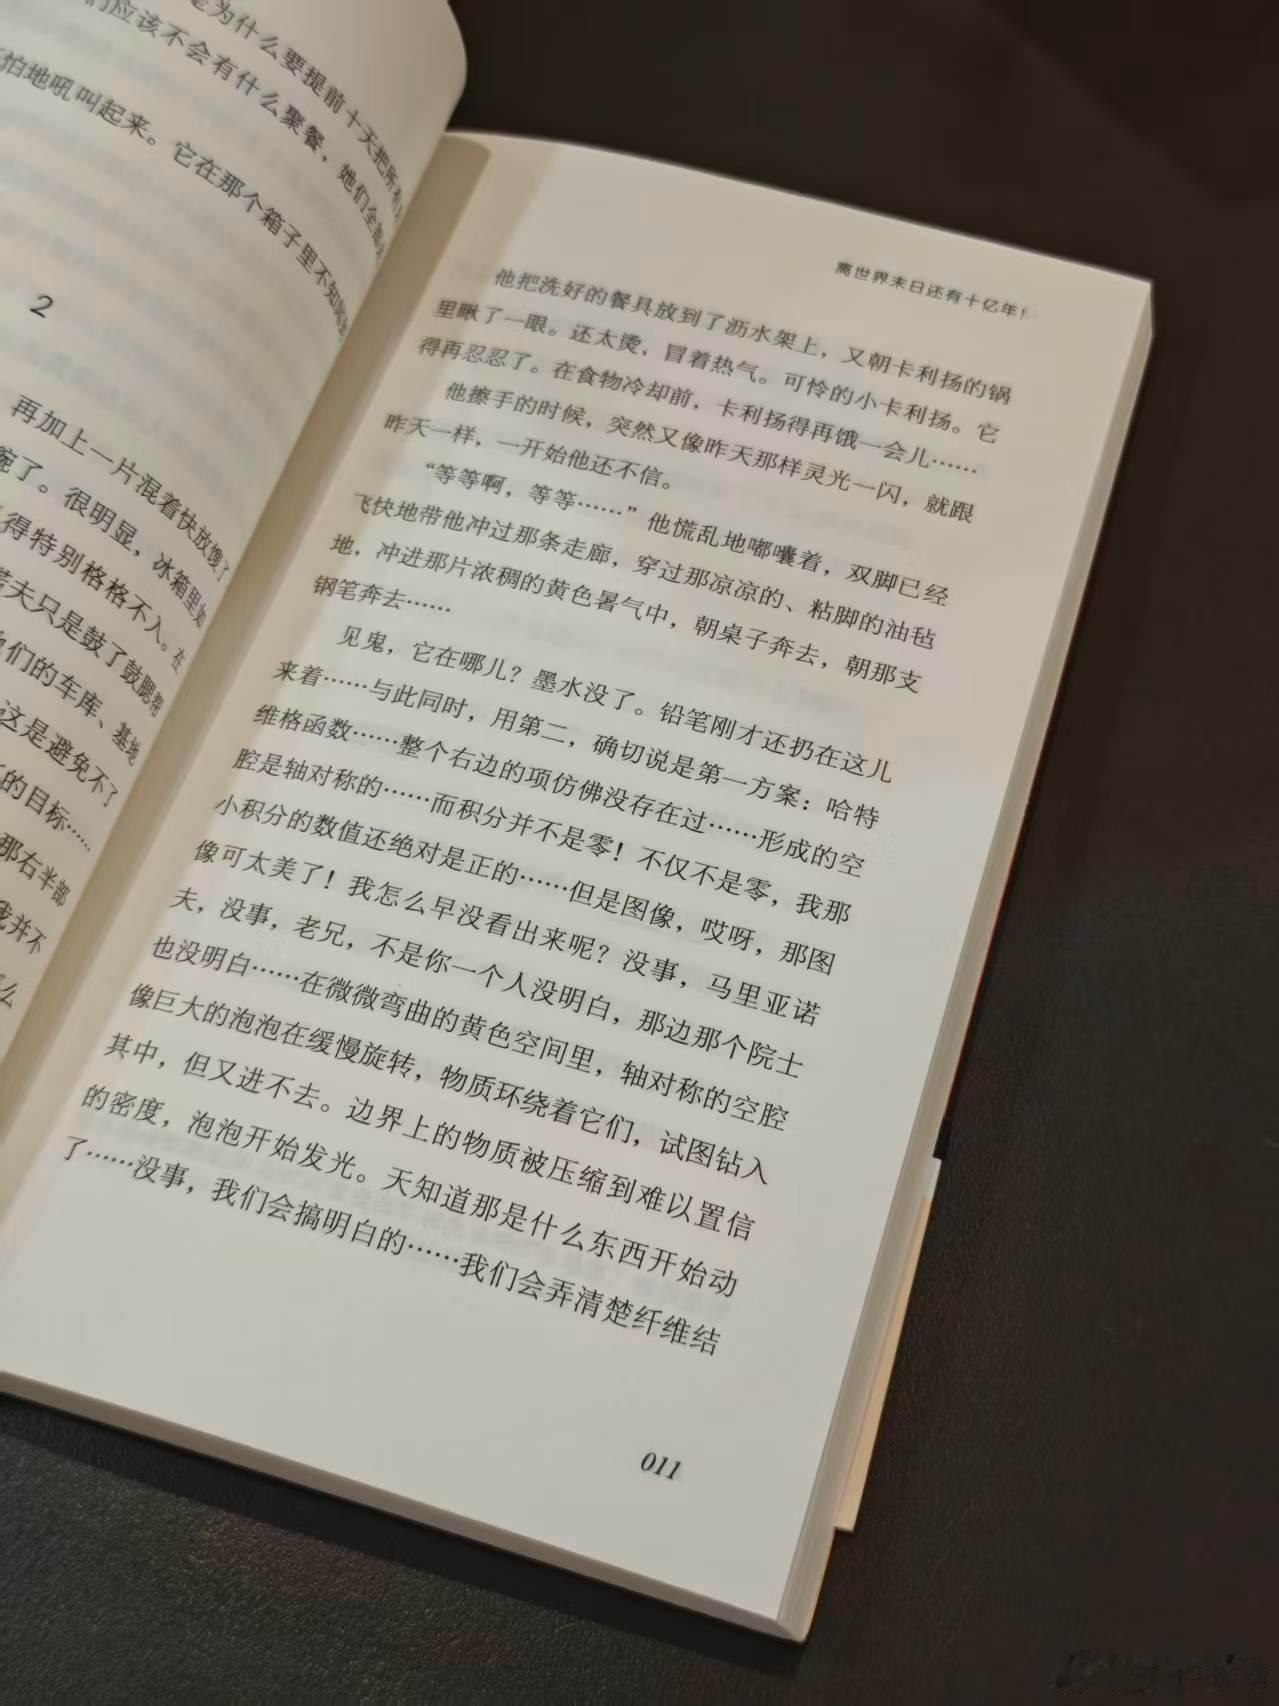 是为什么要提前十天把所有
们应该不会有什么聚餐，她们全都
怕地吼叫起来。它在那个箱子里不知
2
再加上一片混着快放馊了
碗了。很明显，冰箱里如
得特别格格不入。在
夫只是鼓了鼓腮帮
她们的车库、基地
这是避免不了
的目标……
那右半部
我并不
么
离世界末日还有十亿年！
他把洗好的餐具放到了沥水架上，又朝卡利扬的锅
里瞅了一眼。还太烫，冒着热气。可怜的小卡利扬。它
得再忍忍了。在食物冷却前，卡利扬得再饿一会儿……
他擦手的时候，突然又像昨天那样灵光一闪，就跟
昨天一样，一开始他还不信。
“等等啊，等等……”他慌乱地嘟囔着，双脚已经
飞快地带他冲过那条走廊，穿过那凉凉的、粘脚的油毡
地，冲进那片浓稠的黄色暑气中，朝桌子奔去，朝那支
钢笔奔去……
见鬼，它在哪儿？墨水没了。铅笔刚才还扔在这儿
来着……与此同时，用第二，确切说是第一方案：哈特
维格函数……整个右边的项仿佛没存在过……形成的空
腔是轴对称的……而积分并不是零！不仅不是零，我那
小积分的数值还绝对是正的……但是图像，哎呀，那图
像可太美了！我怎么早没看出来呢？没事，马里亚诺
夫，没事，老兄，不是你一个人没明白，那边那个院士
也没明白……在微微弯曲的黄色空间里，轴对称的空腔
像巨大的泡泡在缓慢旋转，物质环绕着它们，试图钻入
其中，但又进不去。边界上的物质被压缩到难以置信
的密度，泡泡开始发光。天知道那是什么东西开始动
了……没事，我们会搞明白的……我们会弄清楚纤维结
011